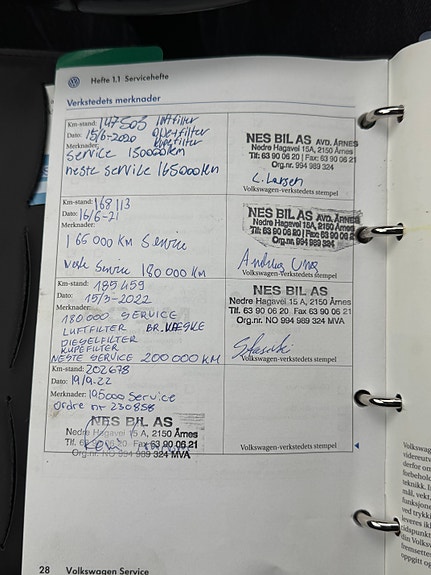 Hefte 1.1 Servicehefte
Verkstedets merknader
Km-stand: 147503 luftfilter
Dato: 15/6-2020
Merknader: kupefilter
Service 150000km
neste service 165000km
NES BIL AS AVD. ÅRNES
Nedre Hagavei 15A, 2150 Årnes
Tlf: 63 90 06 20 | Fax: 63 90 06 21
Org.nr: 994 989 324
C. Larsen
Volkswagen-verkstedets stempel
Km-stand: 168113
Dato: 16/6-21
Merknader:
165 000 KM Service
Neste Service 180 000 KM
NES BIL AS AVD. ÅRNES
Nedre Hagavei 15A, 2150 Årnes
Tlf: 63 90 06 20 | Fax: 63 90 06 21
Org.nr: 994 989 324
Volkswagen-verkstedets stempel
Km-stand: 185459
Dato: 15/3-2022
Merknader:
180000 SERVICE
LUFTFILTER BR.VÆSKE
DIESELFILTER
KUPEFILTER
NESTE SERVICE 200 000 KM
NES BIL AS
Nedre Hagavei 15 A, 2150 Årnes
Tlf. 63 90 06 20 Fax 63 90 06 21
Org.nr. NO 994 989 324 MVA
Volkswagen-verkstedets stempel
Km-stand: 202678
Dato: 19/9-22
Merknader: 195000 Service
ordre nr 230858
NES BIL AS
Nedre Hagavei 15 A, 2150 Årnes
Tlf. 63 90 06 20 Fax 63 90 06 21
Org.nr. NO 994 989 324 MVA
Volkswagen-verkstedets stempel
28 Volkswagen Service